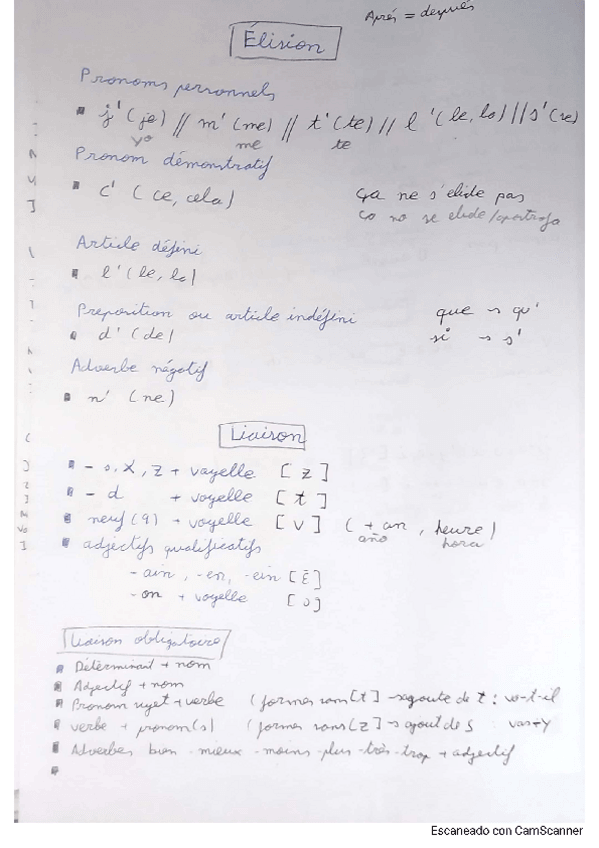 Après = después
Élision
Pronoms personnels
j'(je) // m'(me) // t'(te) // l'(le, la) // s'(se)
yo me te
Pronom démonstratif
c' (ce, cela) ça ne s'elide pas
ça no se elide/apostrofa
Article défini
l'(le, la)
Preposition ou article indéfini que → qu'
d' (de) si → s'
Adverbe négatif
n' (ne)
Liaison
- s, x, z + voyelle [z]
- d + voyelle [t]
neuf (9) + voyelle [v] (+ an, heure)
año hora
adjectifs qualificatifs
- ain, -en, -ein [Ɛ̃]
- on + voyelle [ɔ]
Liaison obligatoire
Déterminant + nom
Adjectif + nom
Pronom sujet + verbe (formes sans [t] → ajoute de t : va-t-il
verbe + pronom(s) (formes sans [z] → ajout de s vas-y
Adverbes bien - mieux - moins - plus - très - trop + adjectif
Escaneado con CamScanner